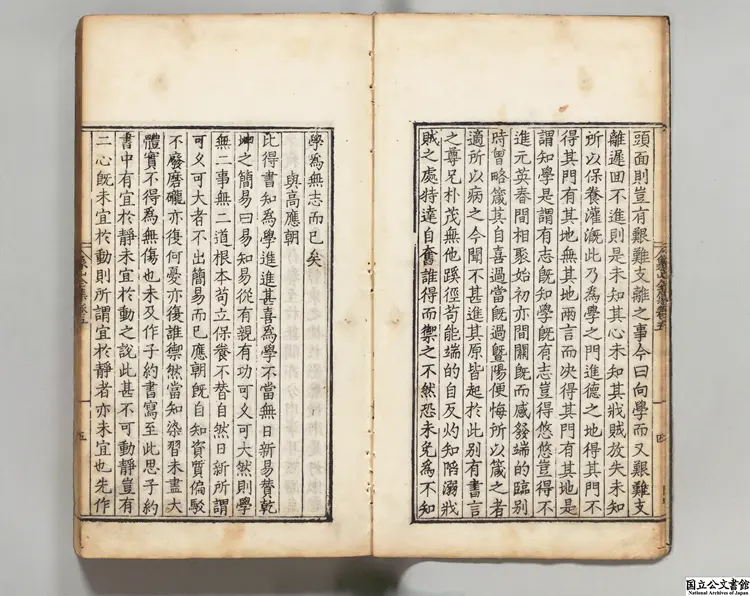 頭面則豈有艱難支離之事今曰向學而又艱難支
離遲回不進則是未知其心未知其戕賊放失未知
所以保養灌溉此乃為學之門進德之地得其門不
得其門有其地無其地兩言而決得其門有其地是
謂知學是謂有志既知學既有志豈得悠悠豈得不
進元英春間相聚始初亦間關既而感發端的臨別
時曾略箴其自喜過當既過暨陽便悔所以箴之者
適所以病之今聞不甚進其原皆起於此別有書言
之尊兄朴茂無他蹊徑苟能端的自反灼知陷溺戕
賊之處特達自奮誰得而禦之不然恐未免為不知
學為無志而已矣
與高應朝
比得書知為學進進甚喜為學不當無日新易贊乾
坤之簡易曰易知易從有親有功可久可大然則學
無二事無二道根本苟立保養不替自然日新所謂
可久可大者不出簡易而已應朝既自知資質偏駁
不廢磨礲亦復何憂亦復誰禦然當知染習未盡大
體實不得為無傷也未及作子約書寫至此思子約
書中有宜於靜未宜於動之說此甚不可動靜豈有
二心既未宜於動則所謂宜於靜者亦未宜也先作
象山全集卷五
四
五
国立公文書館
National Archives of Japan